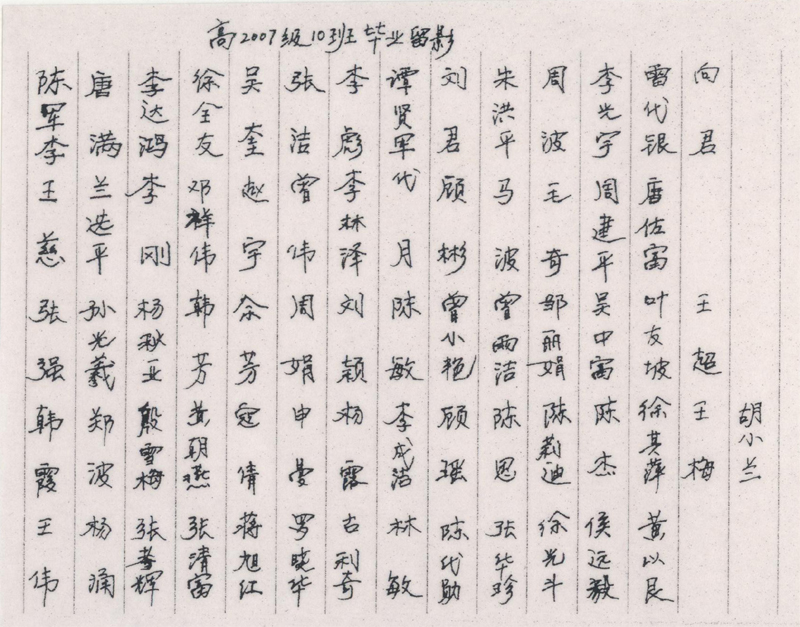 高2007级10班毕业留影
胡小兰
向君 王超 王梅
雷代银 唐佐富 叶友坡 徐其萍 黄以良
李光宇 周建平 吴中富 陈杰 侯远毅
周波 毛奇 邹丽娟 陈莉迪 徐光斗
朱洪平 马波 曾雨洁 陈思 张华珍
刘君 顾彬 曾小艳 顾瑶 陈代勋
谭贤军 代月 陈敏 李成洁 林敏
李彪 李林泽 刘颖 杨露 古利奇
张洁 曾伟 周娟 申曼 罗晓华
吴奎 赵宇 余芳 寇倩 蒋旭红
徐全友 邓祥伟 韩芳 黄朝燕 张清富
李达鸿 李刚 杨秋亚 殷雪梅 张孝辉
唐满 兰选平 孙光羲 郑波 杨涌
陈军 李王慈 张强 韩霞 王伟